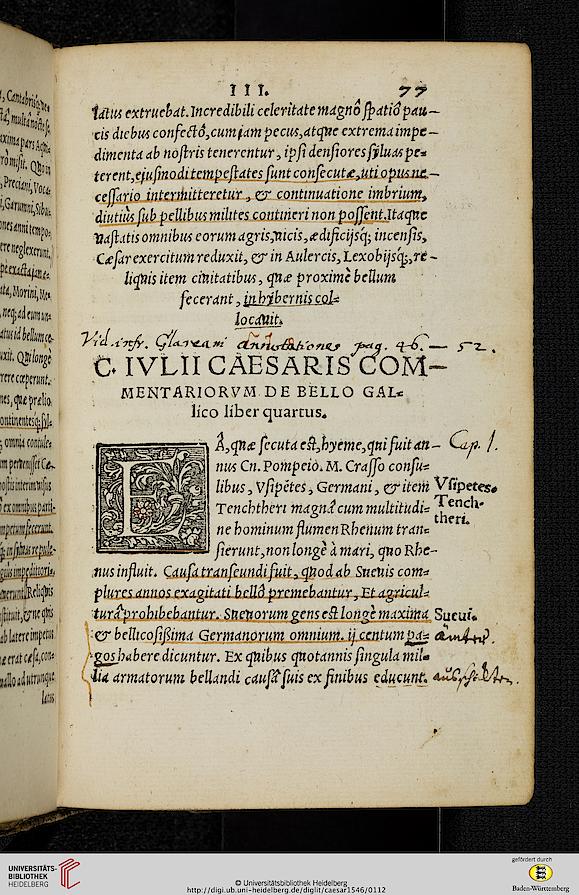 III. 77
latius extruebat. Incredibili celeritate magnô spatiô pau-
cis diebus confectô, cum jam pecus, atque extrema impe-
dimenta ab nostris tenerentur, ipsi densiores sylvas pe-
terent, ejusmodi tempestates sunt consecutæ, uti opus ne-
cessario intermitteretur, & continuatione imbrium,
diutiùs sub pellibus milites contineri non possent. Itaque
vastatis omnibus eorum agris, vicis, ædificijsq; incensis,
Cæsar exercitum reduxit, & in Aulercis, Lexobijsq;, re-
liquis item civitatibus, quæ proximè bellum
fecerant, in hybernis col-
locavit.
Vid. infr. Glareani annotationes pag. 46. — 52.
C. IVLII CAESARIS COM-
MENTARIORVM DE BELLO GAL-
lico liber quartus.
EÂ, quæ secuta est, hyeme, qui fuit an- Cap. 1.
nus Cn. Pompeiô. M. Crasso consu-
libus, Vsipẽtes, Germani, & item Vsipetes.
Tenchtheri magnâ cum multitudi- Tench-
ne hominum flumen Rhenum tran- theri.
sierunt, non longè à mari, quo Rhe-
nus influit. Causa transeundi fuit, quod ab Suevis com-
plures annos exagitati bellô premebantur, Et agricul-
turâ prohibebantur. Suevorum gens est longè maxima Suevi.
& bellicosißima Germanorum omnium. ij centum pa- ämter.
gos habere dicuntur. Ex quibus quotannis singula mil-
lia armatorum bellandi causâ suis ex finibus educunt.
UNIVERSITÄTS-
BIBLIOTHEK
HEIDELBERG
© Universitätsbibliothek Heidelberg
http://digi.ub.uni-heidelberg.de/diglit/caesar1546/0112
gefördert durch
Baden-Württemberg